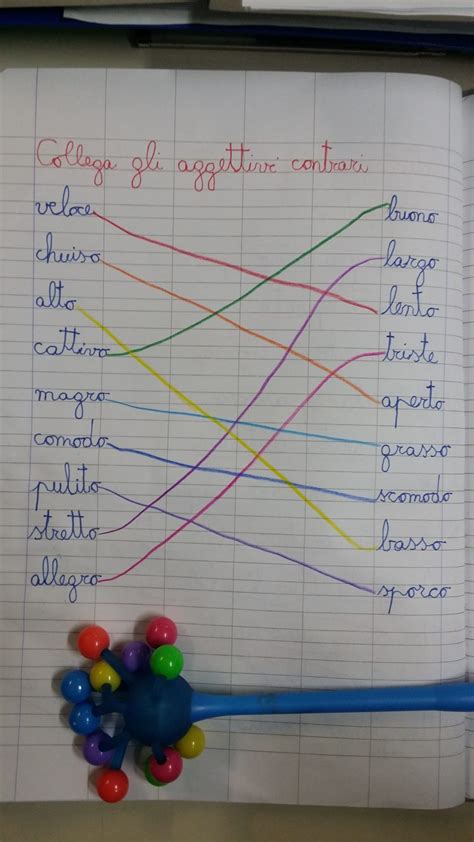 Collega gli aggettivi contrari
veloce buono
chuiso largo
alto lento
cattivo triste
magro aperto
comodo grasso
pulito scomodo
stretto basso
allegro sporco